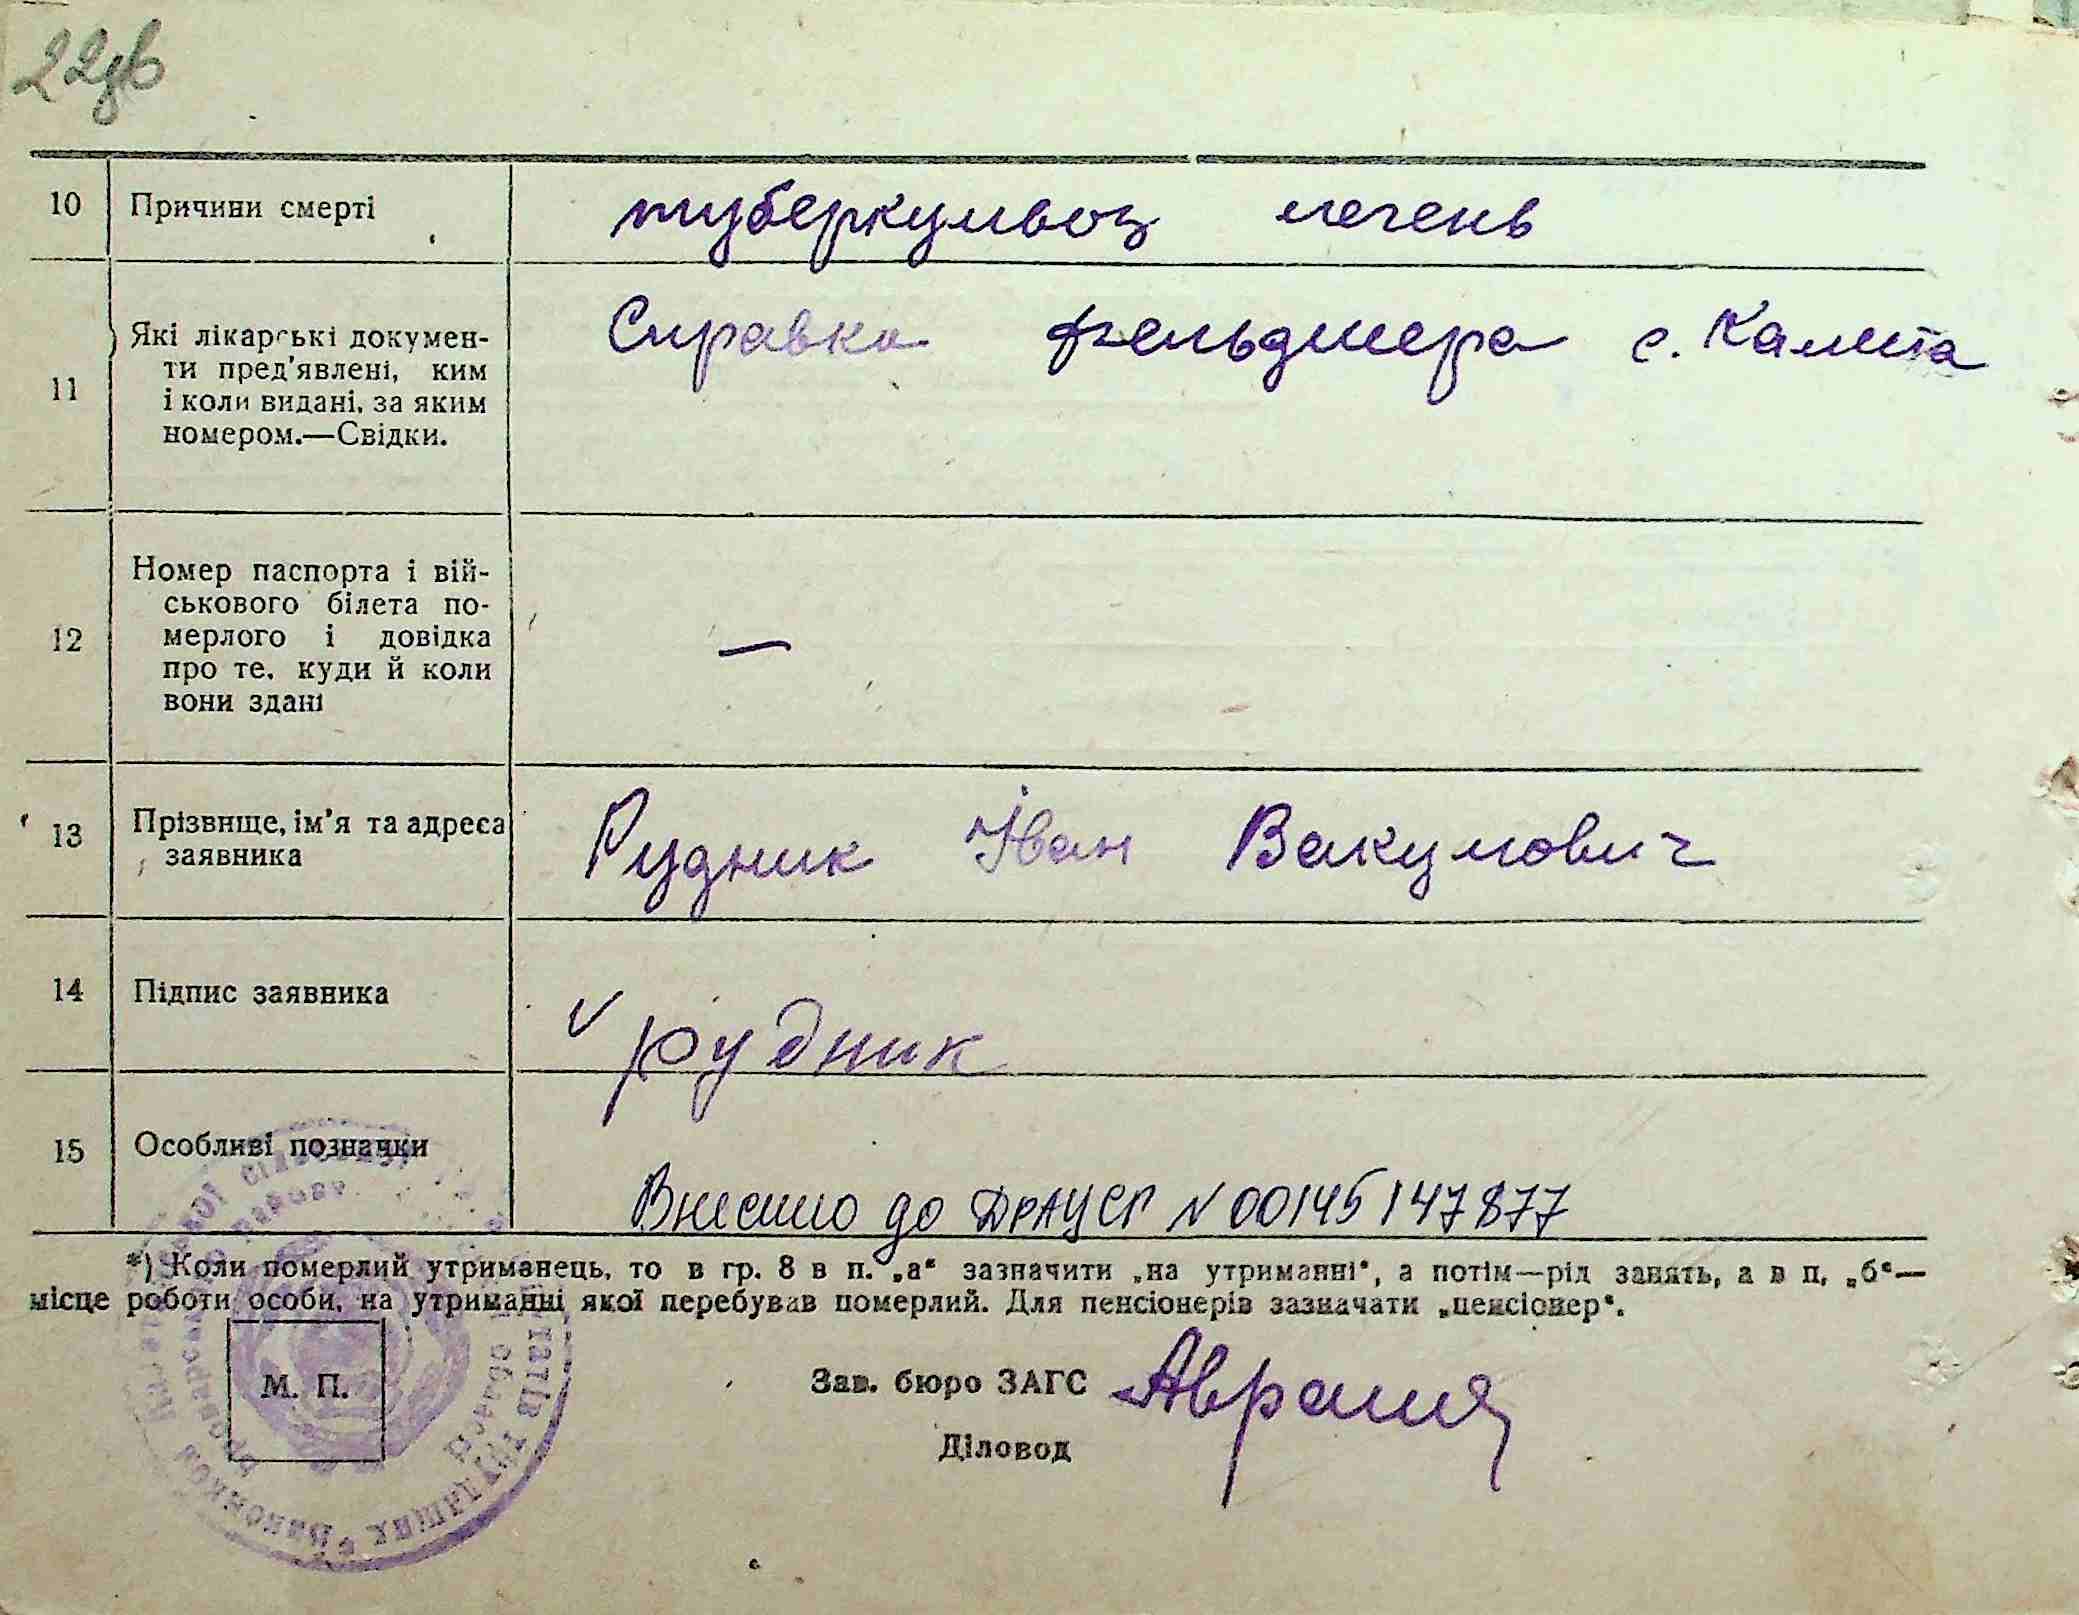 22зв
10 Причини смерті туберкульоз печень
11 Які лікарські докумен-
ти пред'явлені, ким
і коли видані, за яким
номером.—Свідки.
Справка фельдшера с. Калита
12 Номер паспорта і вій-
ськового білета по-
мерлого і довідка
про те, куди й коли
вони здані
—
13 Прізвище, ім'я та адреса
заявника
Рудник Іван Вакумович
14 Підпис заявника
рудник
15 Особливі позначки
Внесено до ДРАЦСГ N 00145147877
*) Коли померлий утриманець, то в гр. 8 в п. „а“ зазначити „на утриманні“, а потім—рід занять, а в п. „б“—
місце роботи особи, на утриманні якої перебував померлий. Для пенсіонерів зазначати „пенсіонер“.
М. П.
Зав. бюро ЗАГС
Діловод